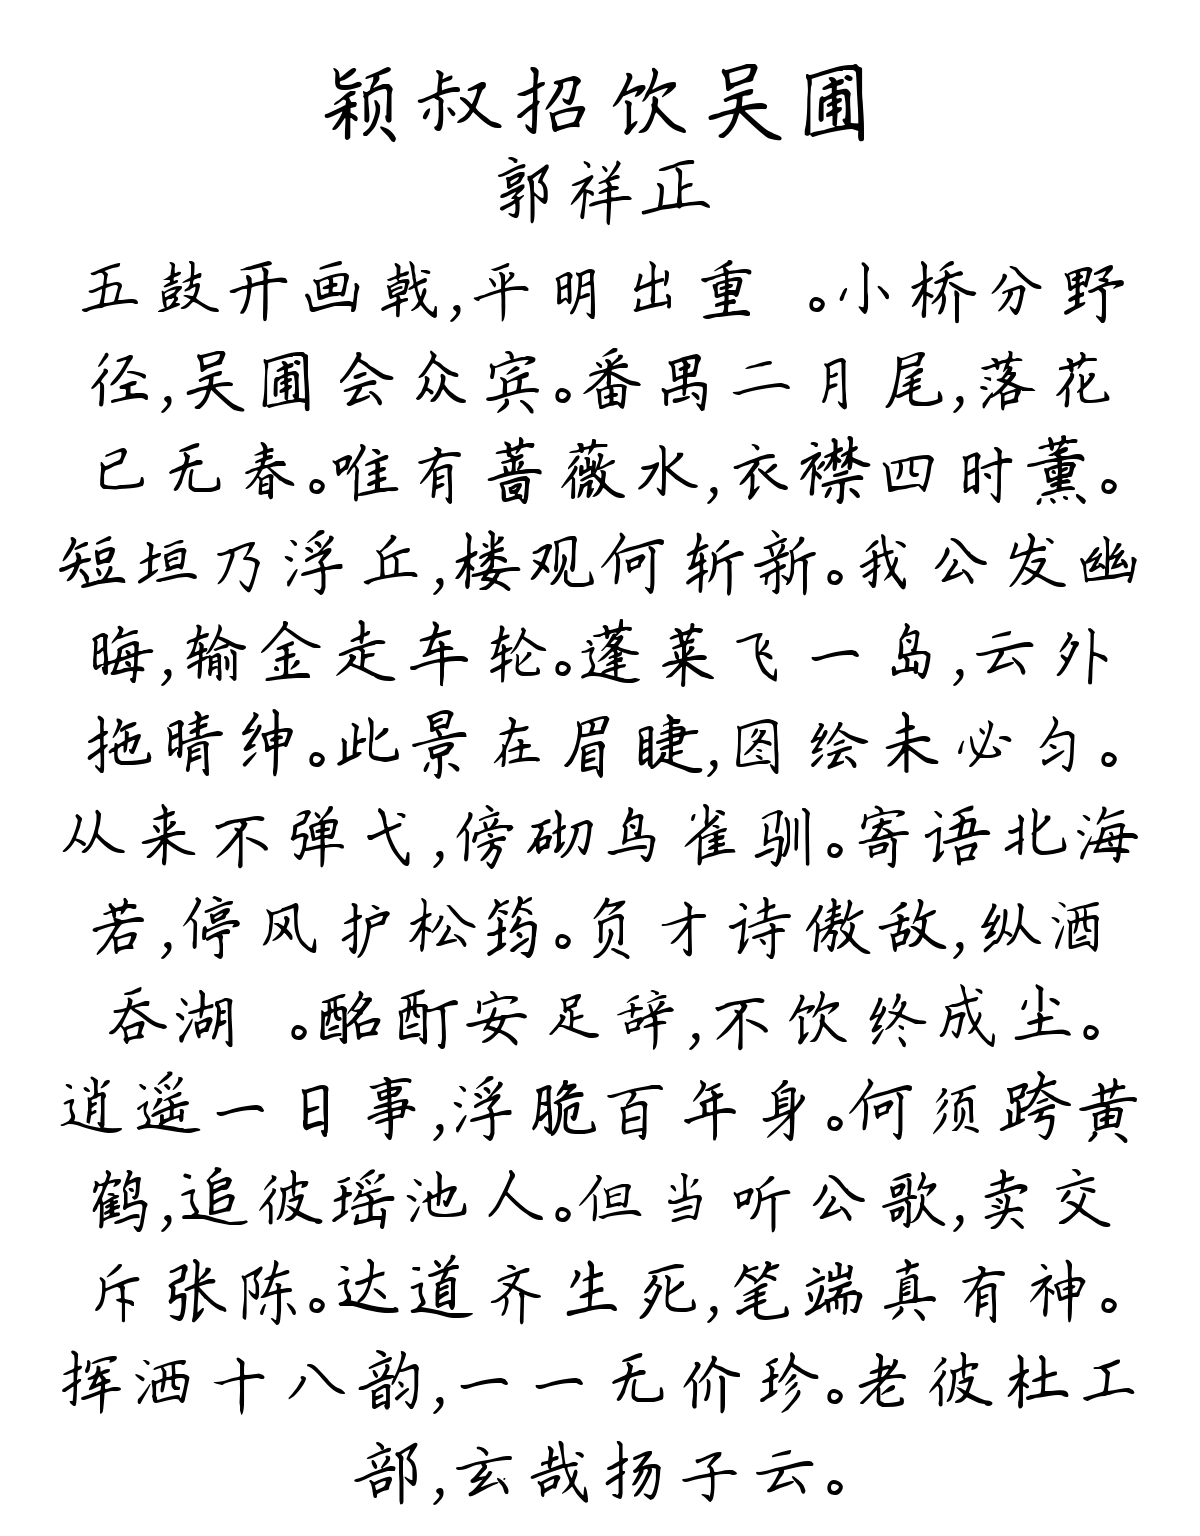 颖叔招饮吴圃
郭祥正
五鼓开画戟,平明出重 。小桥分野
径,吴圃会众宾。番禺二月尾,落花
已无春。唯有蔷薇水,衣襟四时薰。
短垣乃浮丘,楼观何斩新。我公发幽
晦,输金走车轮。蓬莱飞一岛,云外
拖晴绅。此景在眉睫,图绘未必匀。
从来不弹弋,傍砌鸟雀驯。寄语北海
若,停风护松筠。负才诗傲敌,纵酒
吞湖 。酩酊安足辞,不饮终成尘。
逍遥一日事,浮脆百年身。何须跨黄
鹤,追彼瑶池人。但当听公歌,卖交
斥张陈。达道齐生死,笔端真有神。
挥洒十八韵,一一无价珍。老彼杜工
部,玄哉扬子云。